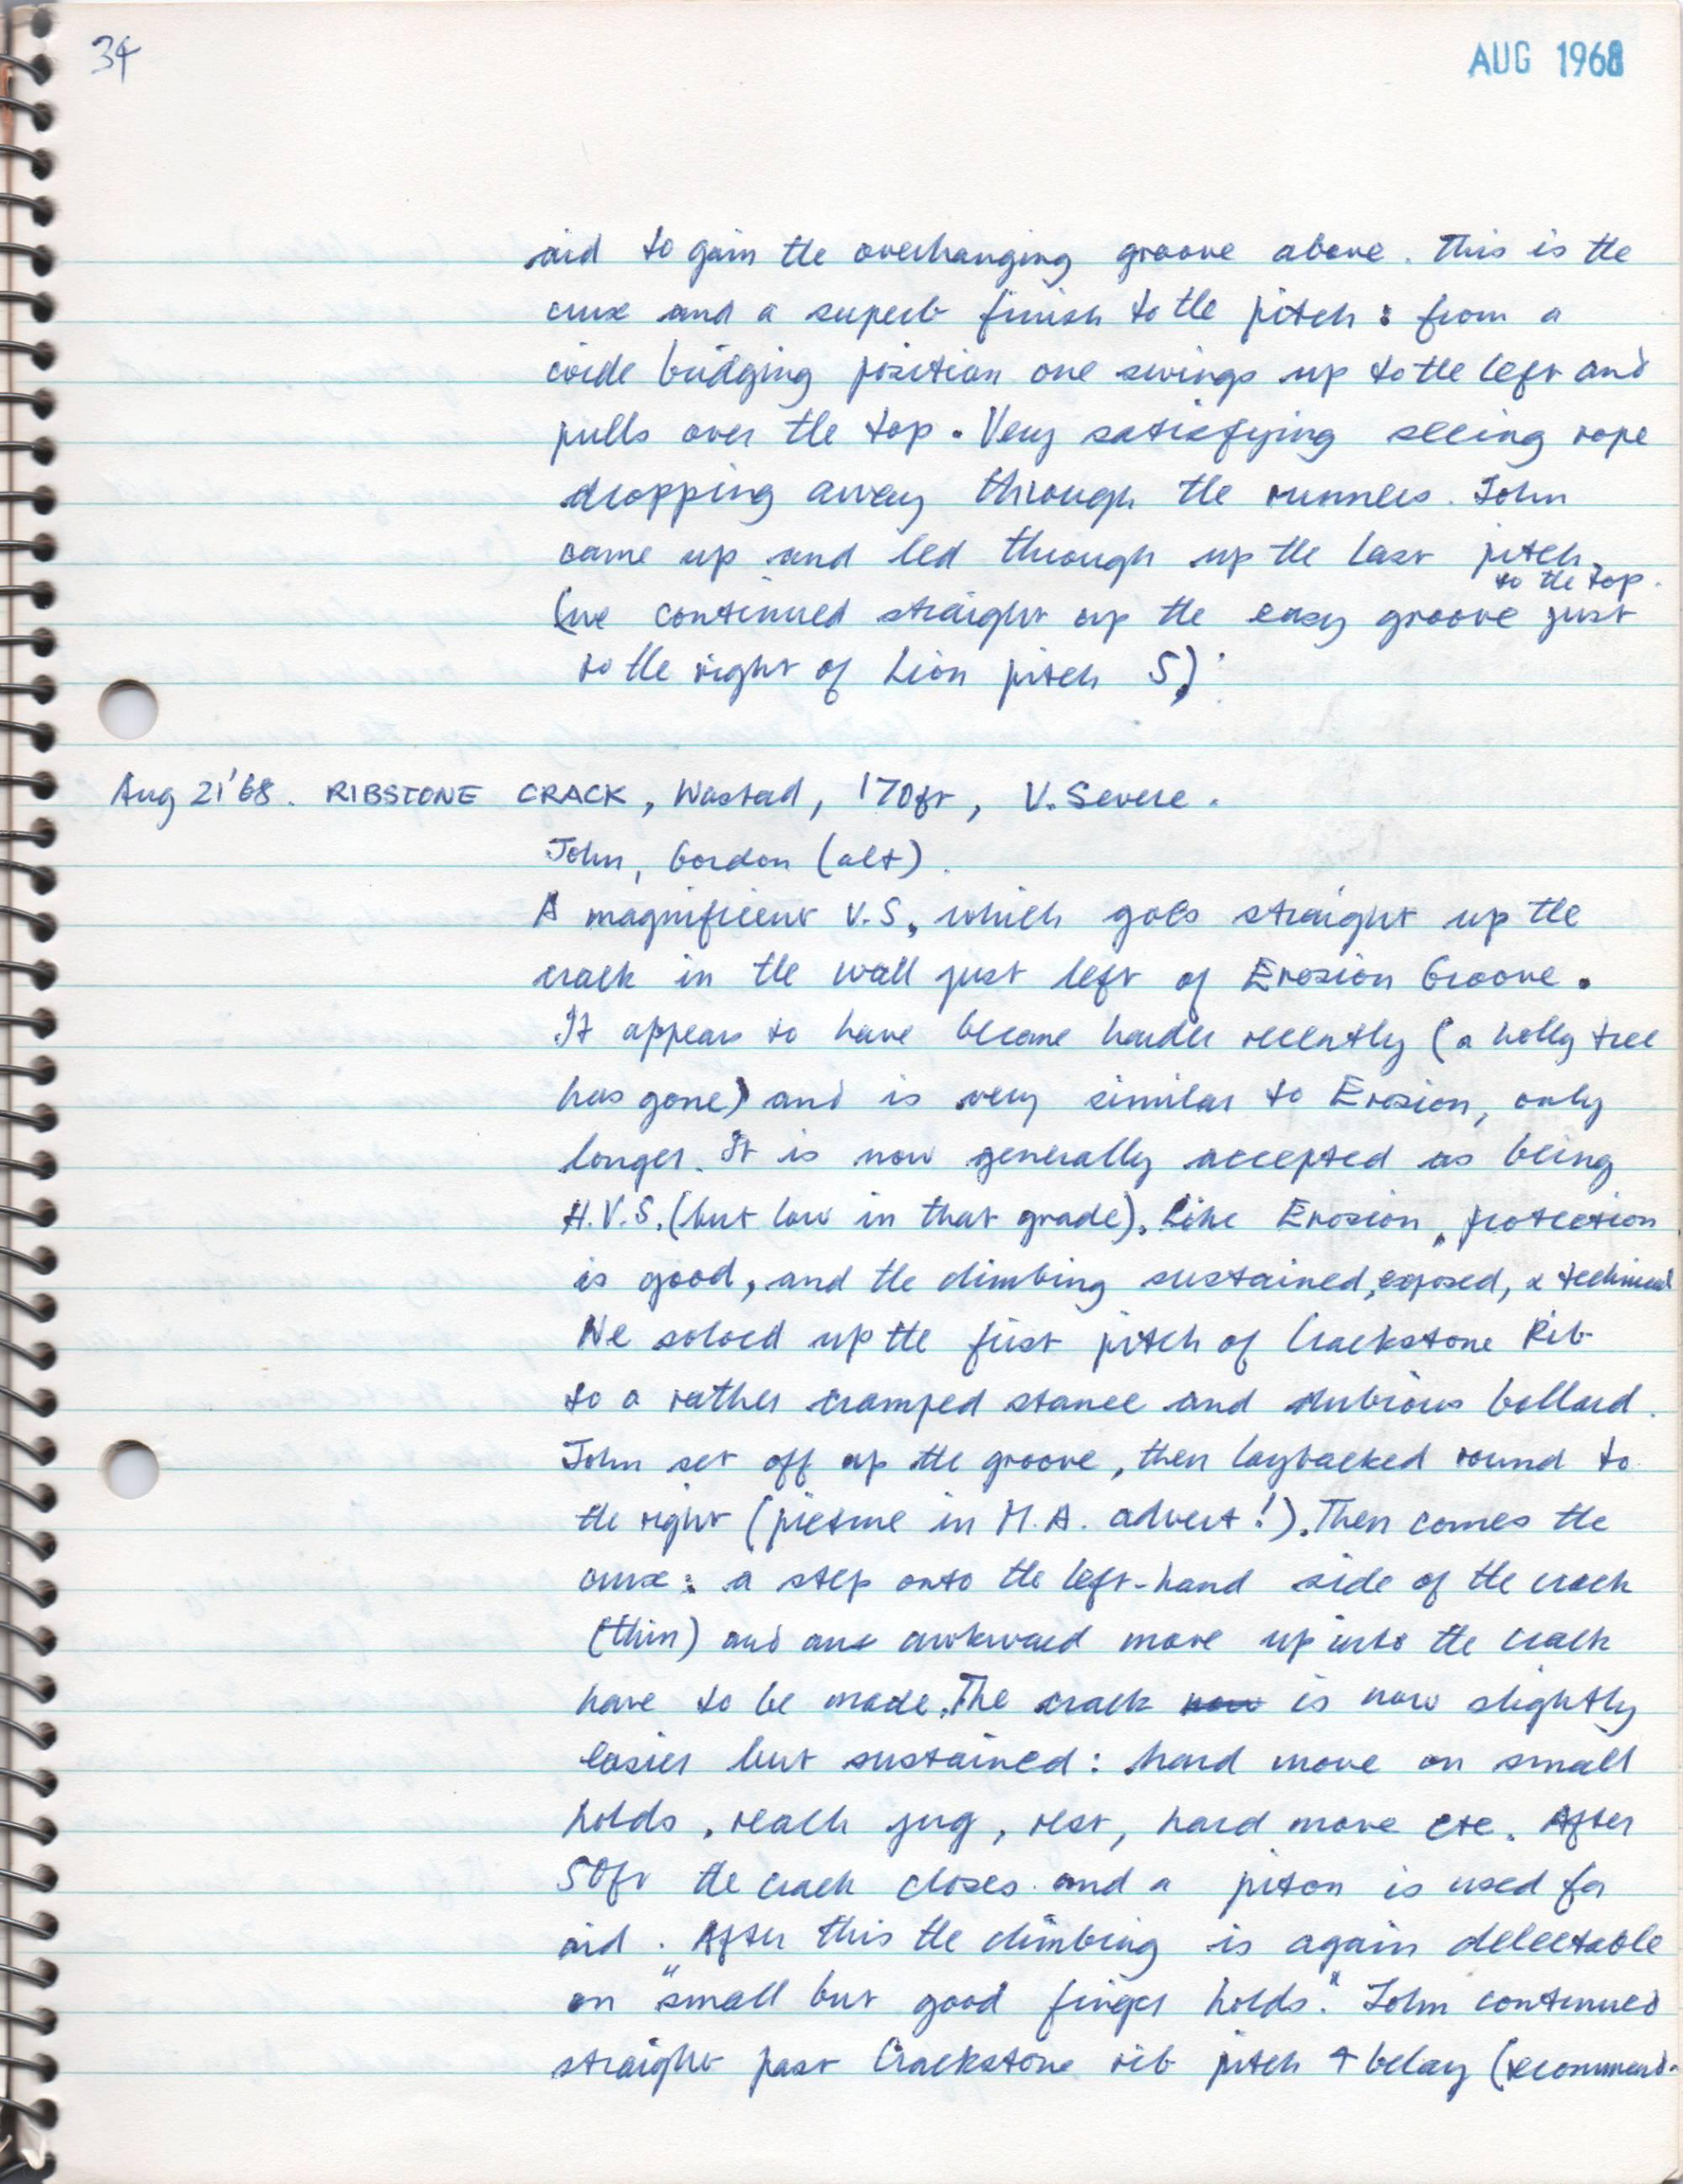 34
AUG 1968
aid to gain the overhanging groove above. This is the
crux and a superb finish to the pitch : from a
wide bridging position one swings up to the left and
pulls over the top. Very satisfying seeing rope
dropping away through the runners. John
came up and led through up the last pitch
to the top.
(we continued straight up the easy groove just
to the right of Lion pitch 5).
Aug 21'68. RIBSTONE CRACK, Wastad, 170ft, V. Severe.
John, Gordon (alt).
A magnificent V.S, which goes straight up the
crack in the wall just left of Erosion Groove.
It appears to have become harder recently (a holly tree
has gone) and is very similar to Erosion, only
longer. It is now generally accepted as being
H.V.S. (but low in that grade). Like Erosion, protection
is good, and the climbing sustained, exposed, & technical
We soloed up the first pitch of Crackstone Rib
to a rather cramped stance and dubious bollard.
John set off up the groove, then laybacked round to
the right (picture in M.A. advert!). Then comes the
crux: a step onto the left-hand side of the crack
(thin) and an awkward move up into the crack
have to be made. The crack now is now slightly
easier but sustained: hard move on small
holds, reach jug, rest, hard move etc. After
50ft the crack closes and a piton is used for
aid. After this the climbing is again delectable
on "small but good finger holds." John continued
straight past Crackstone rib pitch 4 belay (recommend-